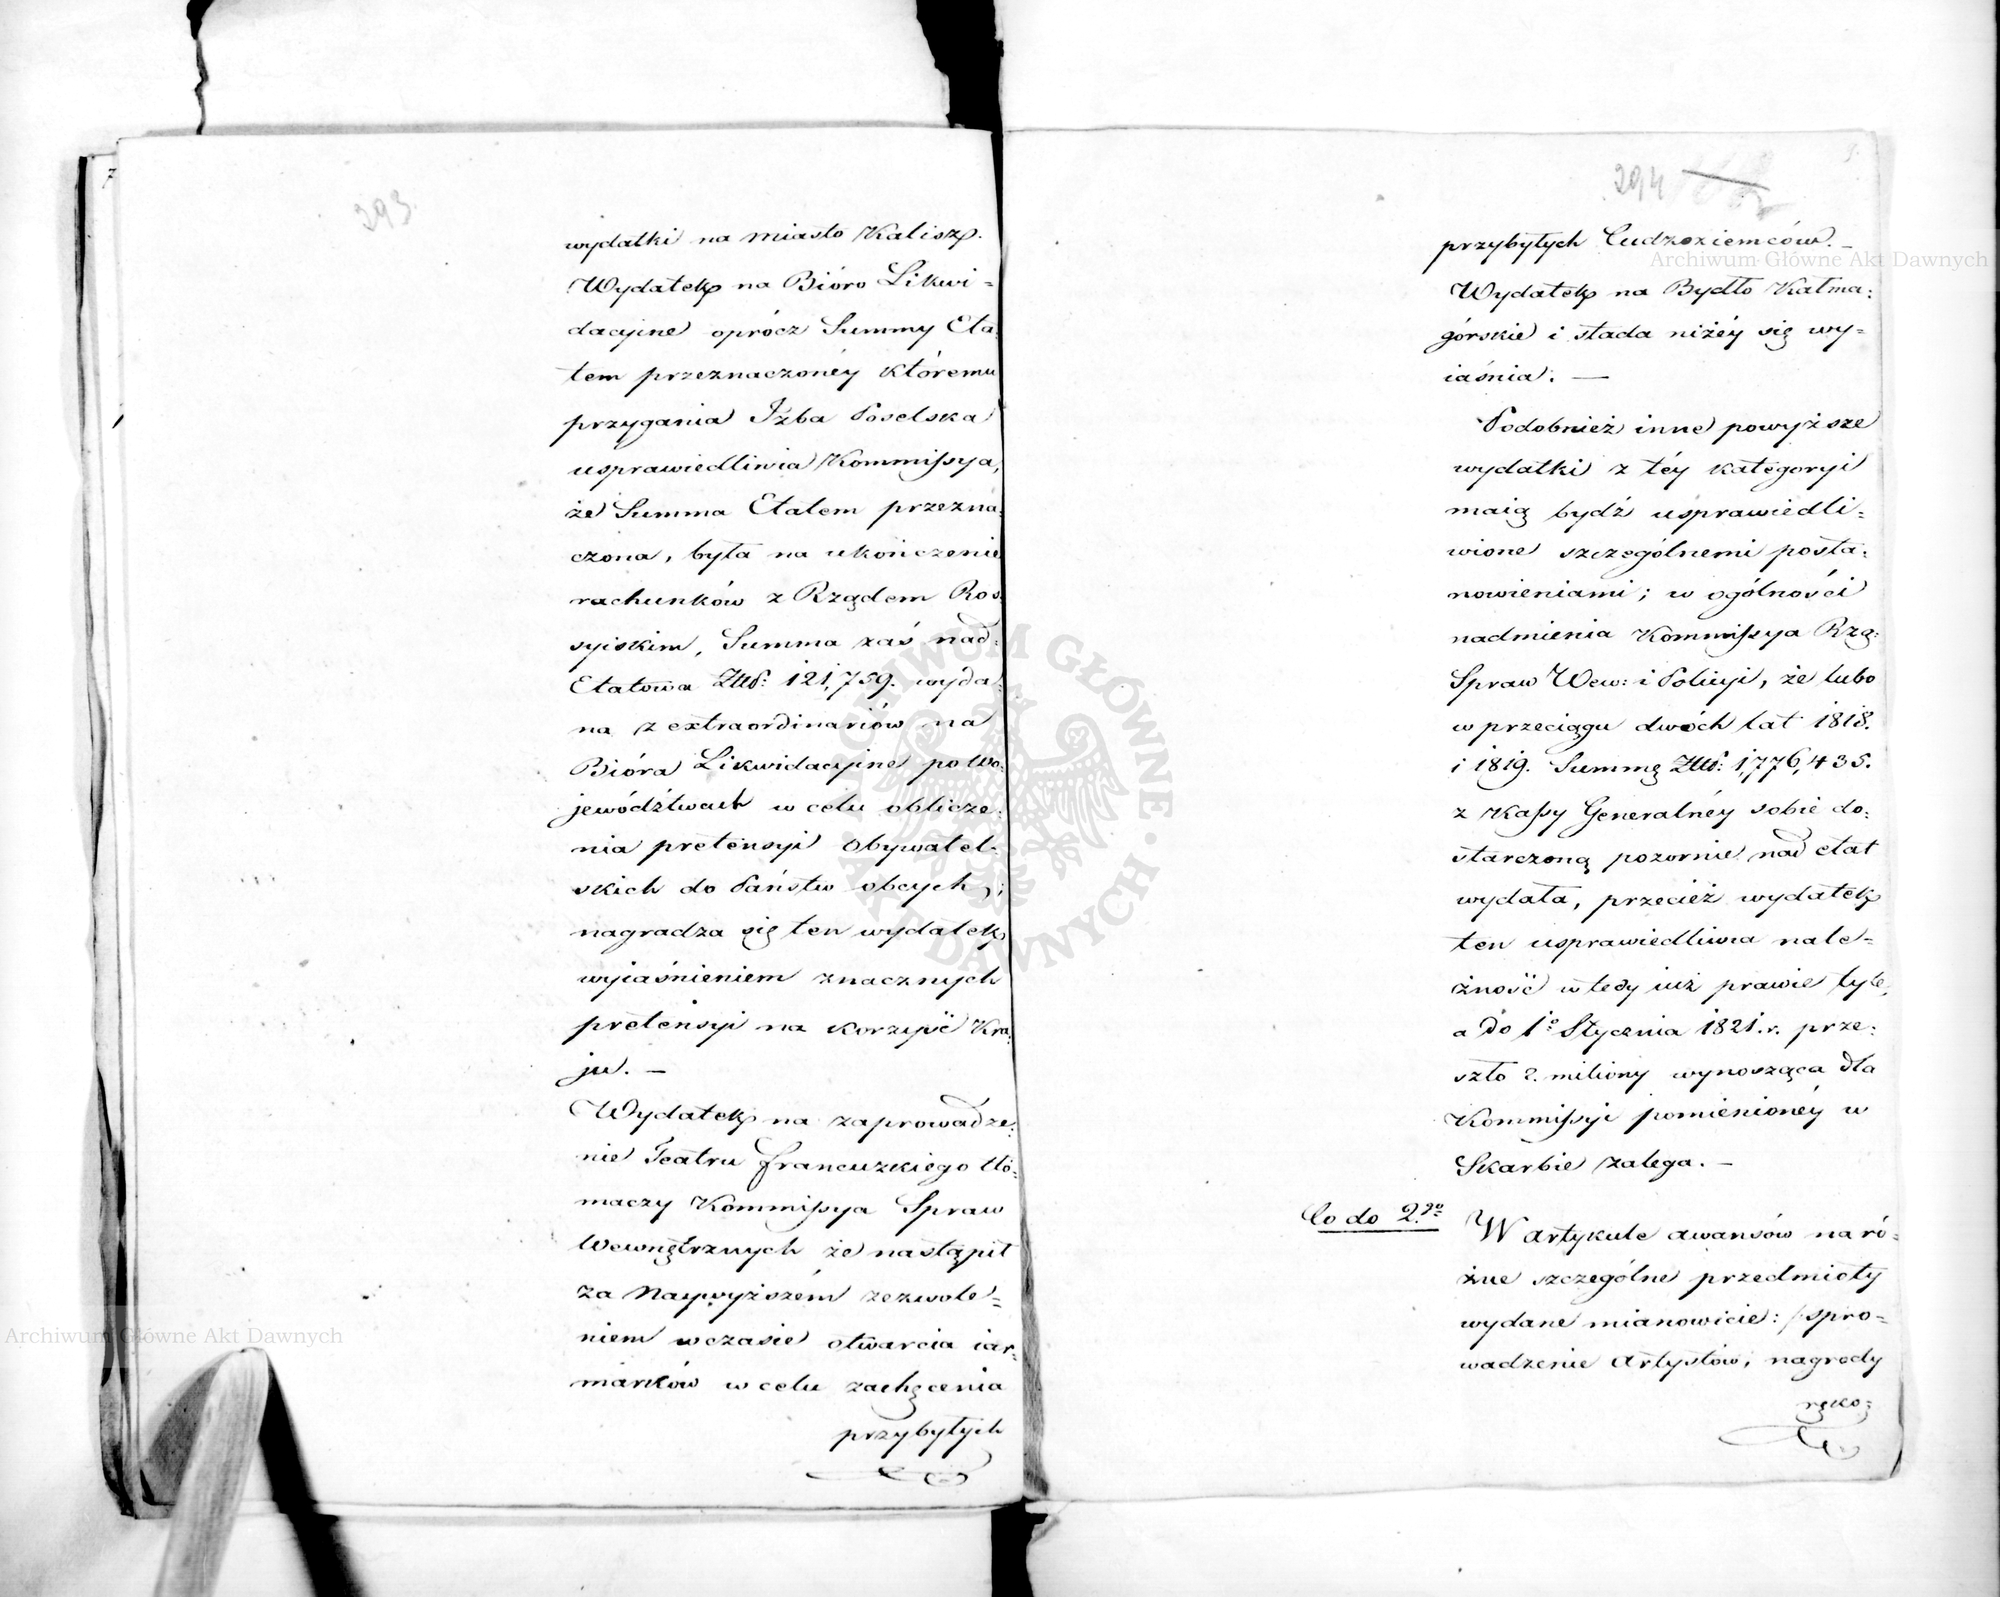 293.
wydatki na miasto Kalisz.
Wydatek na Bióro Likwi=
dacyjne oprócz Summy Eta=
tem przeznaczonéy któremu
przygania Jzba Poselska
usprawiedliwia Kommissya,
że Summa Etatem przezna=
czona, była na ukończenie
rachunków z Rządem Ros=
syiskim, Summa zaś nad=
Etatowa Złłp: 121,759. wyda=
na z extraordinariów na
Bióra Likwidacyjne po Wo=
jewództwach w celu oblicze=
nia pretensyi Obywatel=
skich do Państw obcych,;
nagradza się ten wydatek
wyiaśnieniem znacznych
pretensyi na korzyść Kra=
ju. —
Wydatek na zaprowadze=
nie Teatru francuzkiego tło=
maczy Kommissya Spraw
Wewnętrznych że nastąpił
za Naywyższém zezwole=
niem w czasie otwarcia iar=
marków w celu zachęcenia
przybyłych
294
przybyłych Cudzoziemców. —
Wydatek na Bydło Kałma=
górskie i stada niżéy się wy=
iaśnia. —
Podobnież inne powyższe
wydatki z téy kategoryi
maią bydź usprawiedli=
wione szczególnemi posta=
nowieniami; w ogólności
nadmienia Kommissya Rzą:
Spraw Wew: i Policyi, że lubo
w przeciągu dwóch lat 1818.
i 1819. Summę Złłp: 1,776,435.
z Kassy Generalnéy sobie do=
starczoną pozornie nad etat
wydała, przecież wydatek
ten usprawiedliwia nale=
żność wtedy iuż prawie tyle,
a do 1º Stycznia 1821. r. prze=
szło 2. miliony wynosząca dla
Kommissyi pomienionéy w
Skarbie zalega. —
Co do 2.go W artykule awansów na ró=
żne szczególne przedmioty
wydane mianowicie: /:spro=
wadzenie Artystów, nagrody
ręko=
Archiwum Główne Akt Dawnych
Archiwum Główne Akt Dawnych
ARCHIWUM GŁÓWNE · AKT DAWNYCH ·